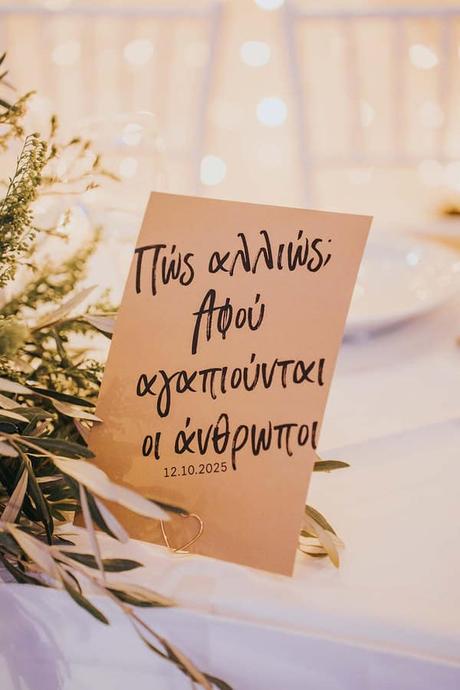 Πώς αλλιώς;
Αφού
αγαπιούνται
οι άνθρωποι
12.10.2025